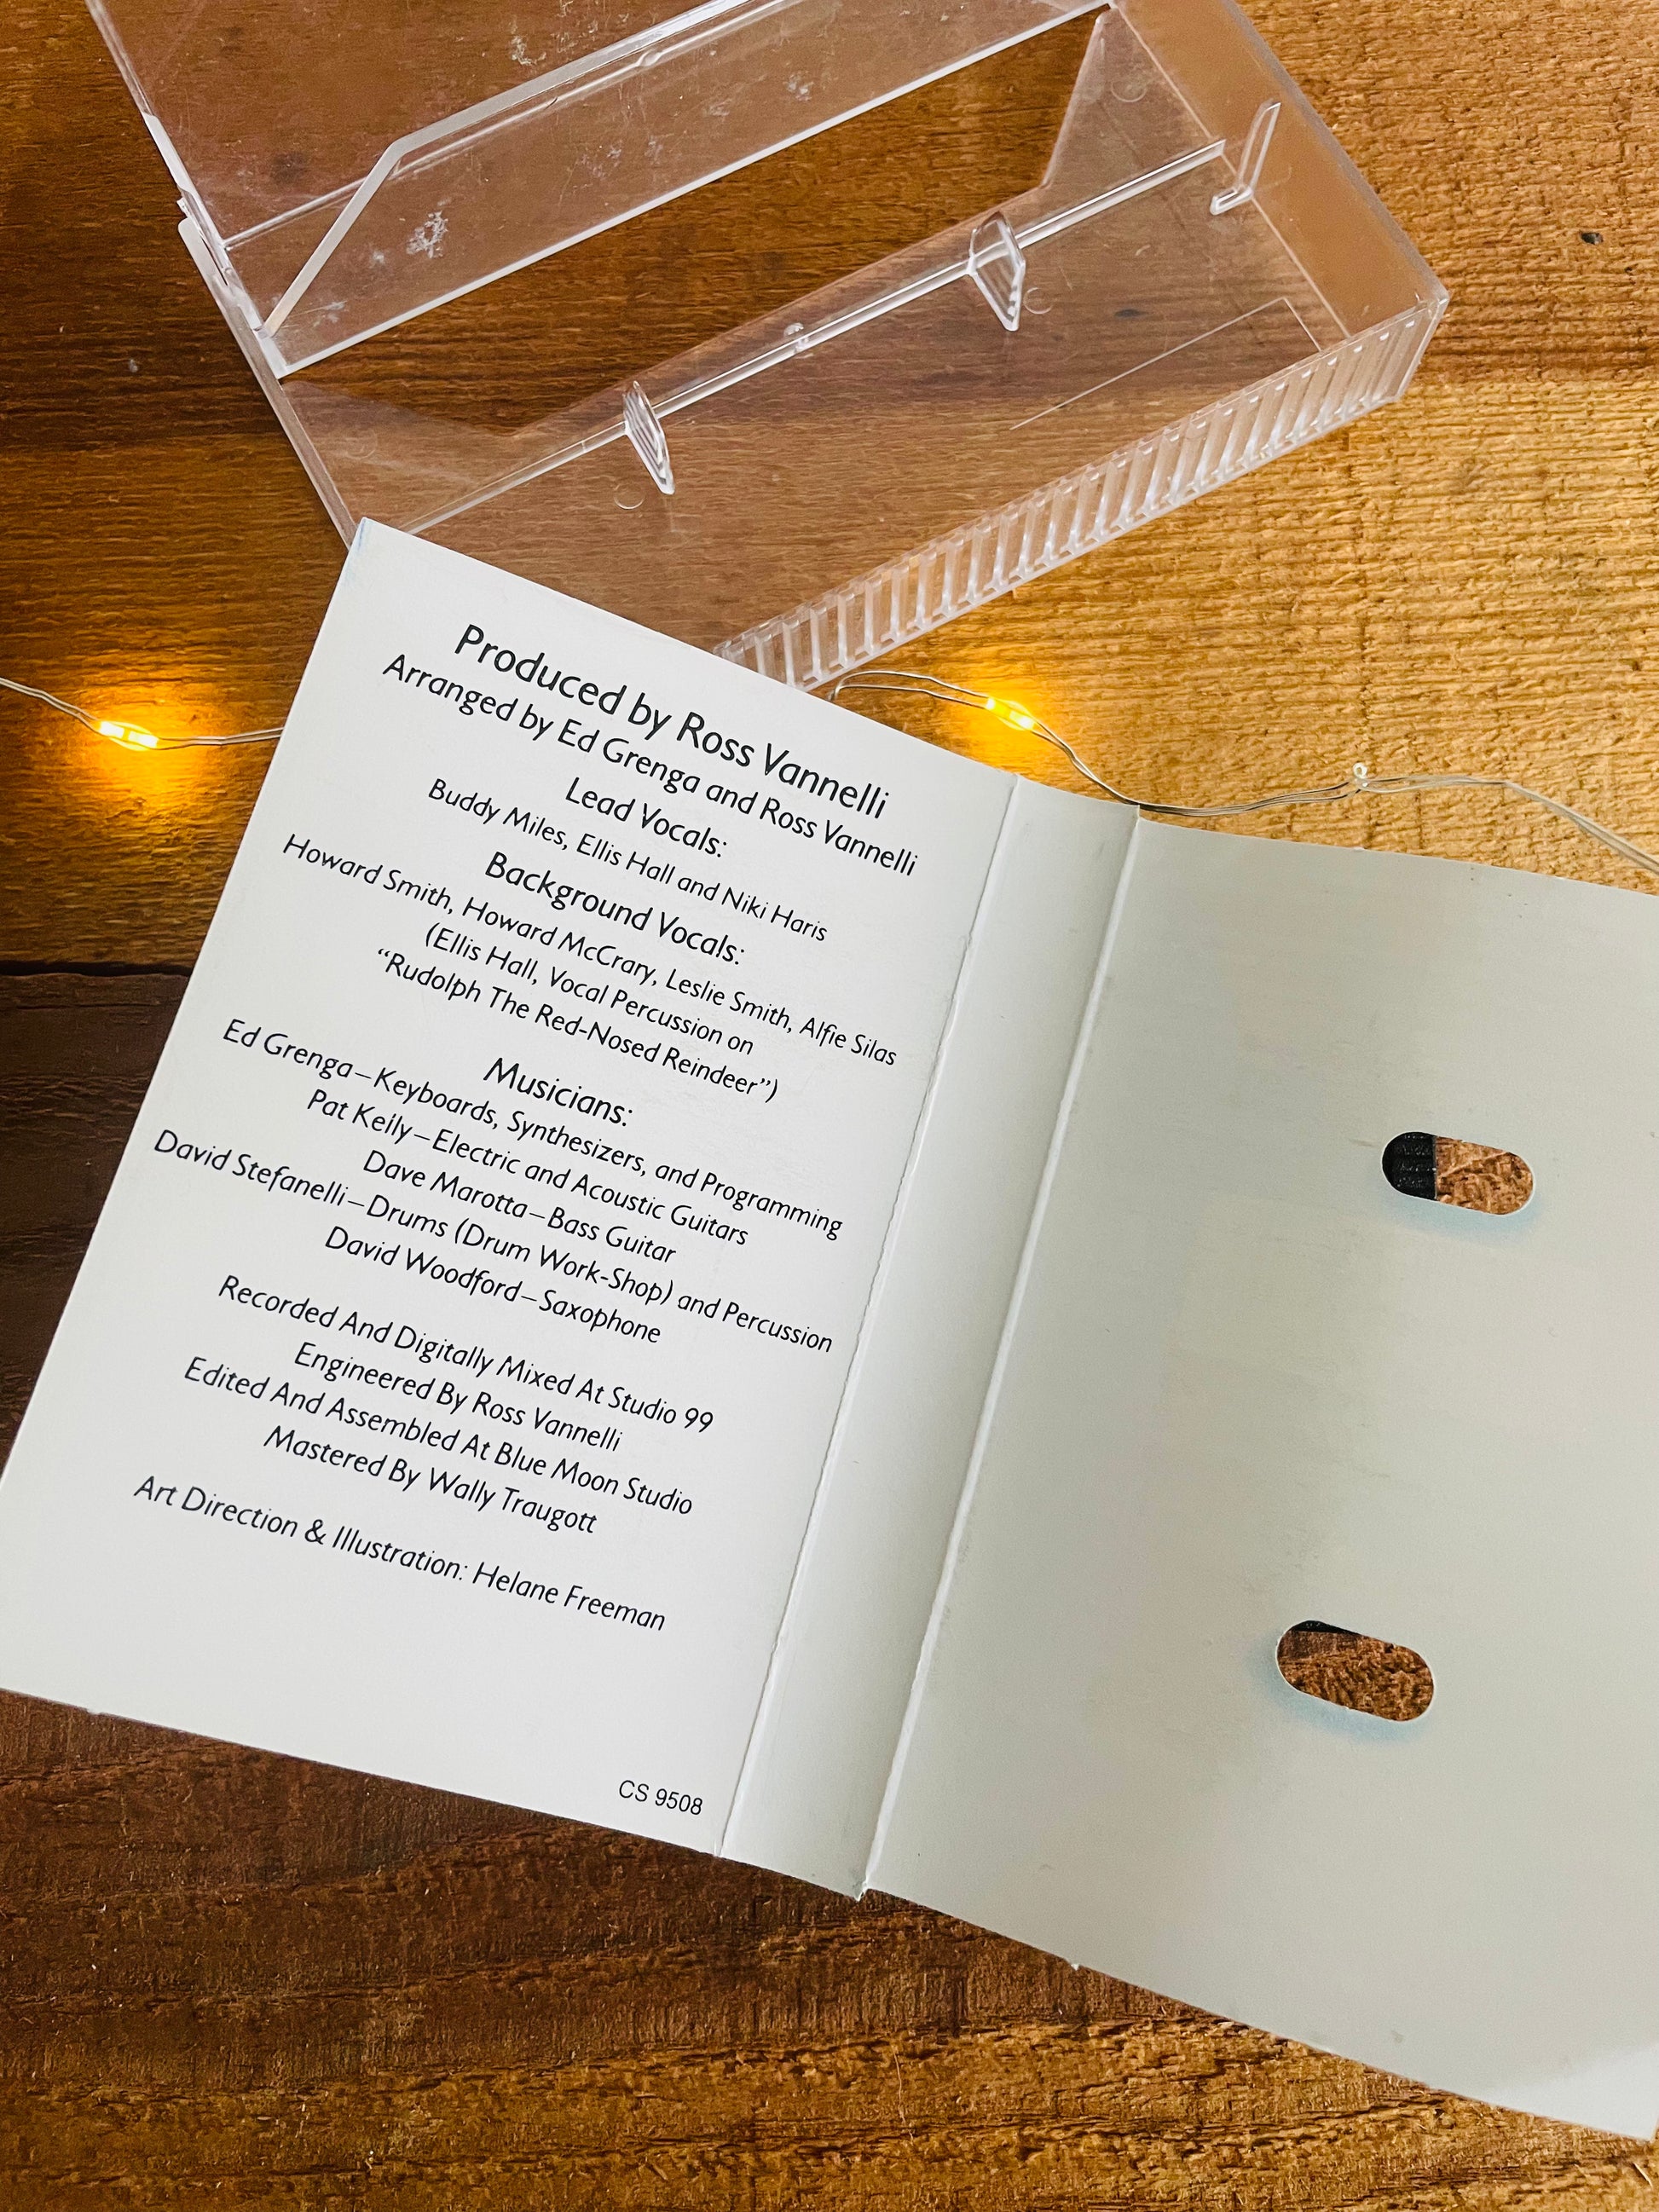 Produced by Ross Vannelli
Arranged by Ed Grenga and Ross Vannelli
Lead Vocals:
Buddy Miles, Ellis Hall and Niki Haris
Background Vocals:
Howard Smith, Howard McCrary, Leslie Smith, Alfie Silas
(Ellis Hall, Vocal Percussion on
“Rudolph The Red-Nosed Reindeer”)
Musicians:
Ed Grenga–Keyboards, Synthesizers, and Programming
Pat Keily–Electric and Acoustic Guitars
Dave Marotta–Bass Guitar
David Stefanelli–Drums (Drum Work-Shop) and Percussion
David Woodford–Saxophone
Recorded And Digitally Mixed At Studio 99
Engineered By Ross Vannelli
Edited And Assembled At Blue Moon Studio
Mastered By Wally Traugott
Art Direction & Illustration: Helane Freeman
CS 9508